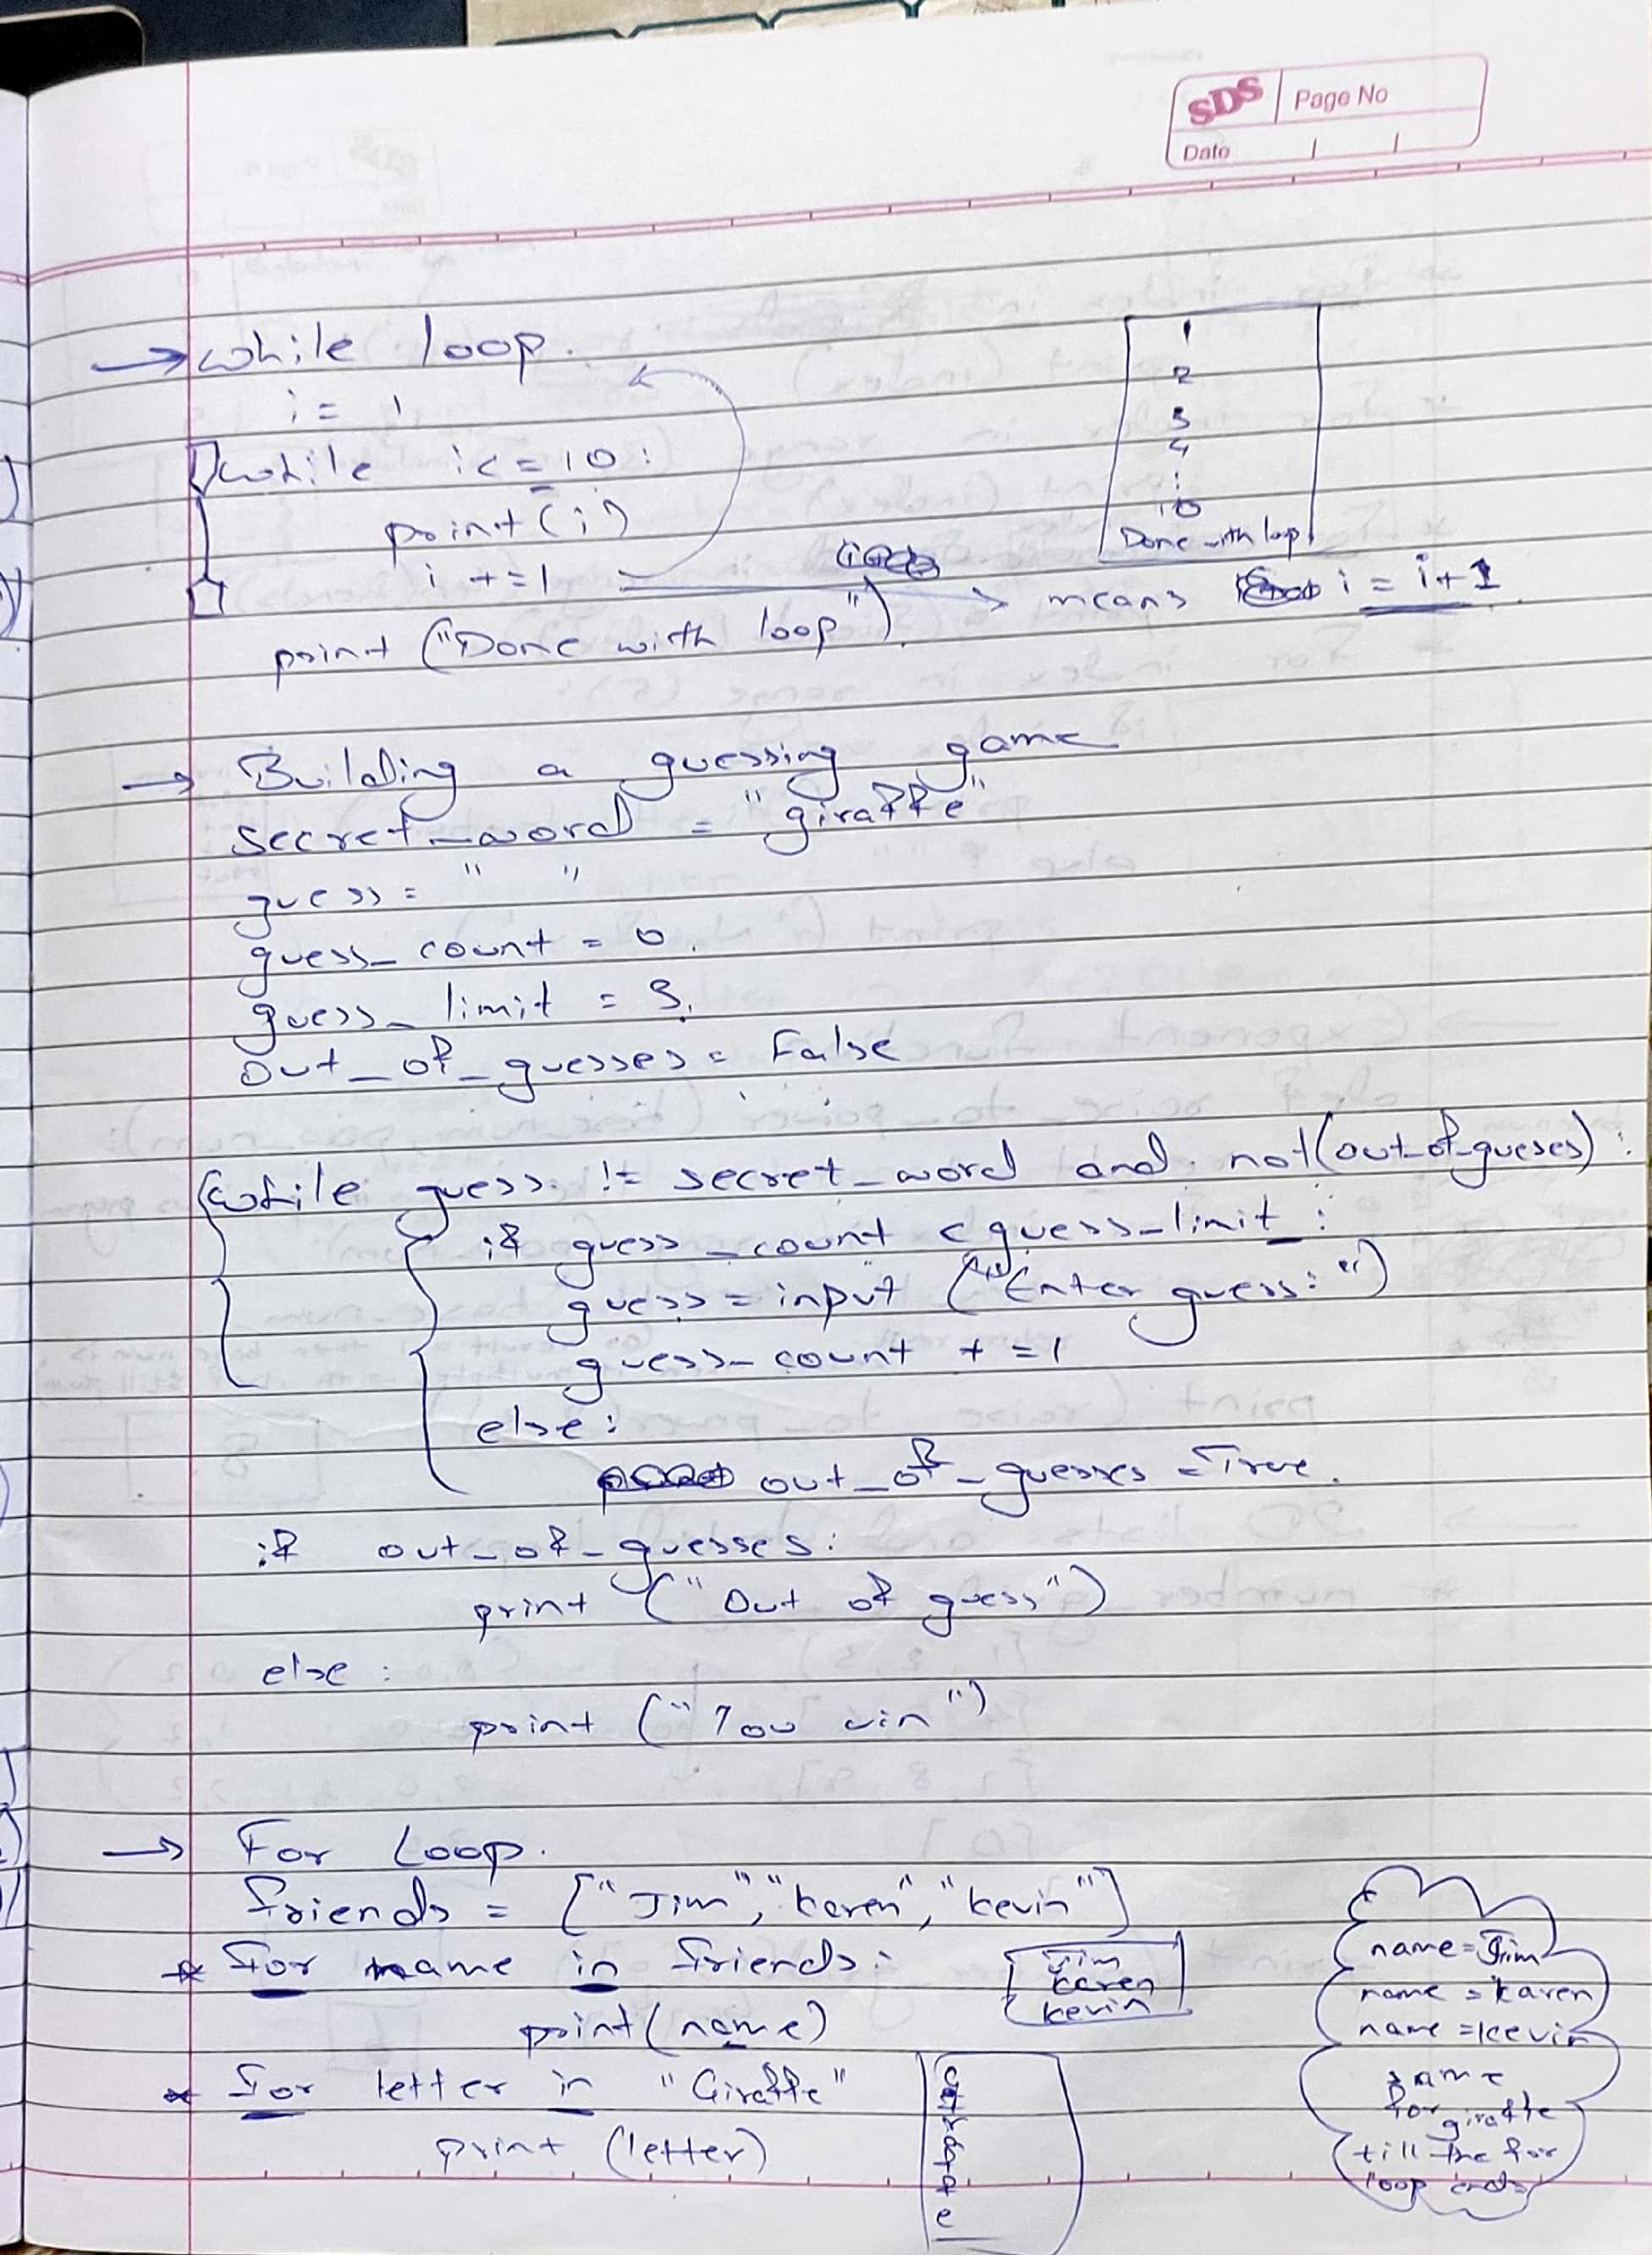 SDS Page No
Date
→ while loop.
i = 1
while i <= 10:
print (i)
i += 1 → means i = i+1
print ("Done with loop").
1
2
3
4
:
10
Done with loop
→ Building a guessing game
secret_word = "giraffe"
guess = " "
guess_count = 0.
guess_limit = 3.
out_of_guesses = False
while guess != secret_word and not(out_of_gueses):
if guess_count < guess_limit:
guess = input ("Enter guess: ")
guess_count += 1
else:
out_of_guesses = True.
if out_of_guesses:
print ("Out of guess")
else:
print ("You win")
→ For Loop.
friends = ["Jim", "karen", "kevin"]
* for name in friends:
print (name)
Jim
karen
kevin
* for letter in "Giraffe"
print (letter)
G
i
r
a
f
f
e
name = Jim
name = karen
name = kevin
same
for
giraffe
till the for
loop ends